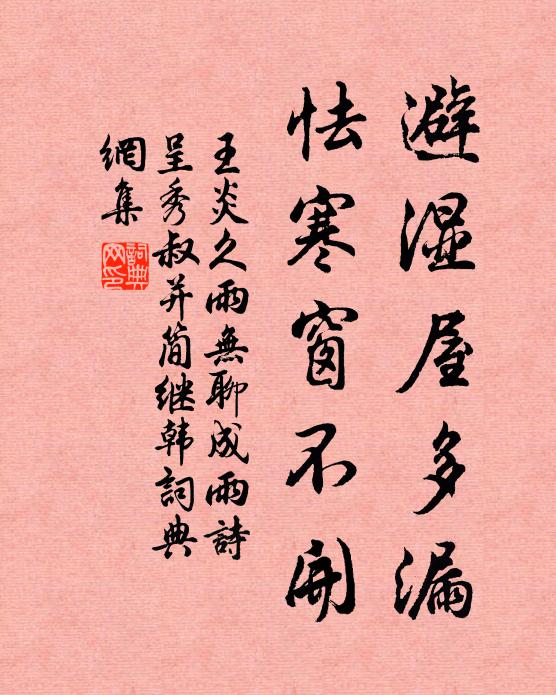 避湿屋多漏
怯寒窗不開
王炎久雨無聊成兩詩
呈秀叔并簡继韩詞典
網集
詞典
网印